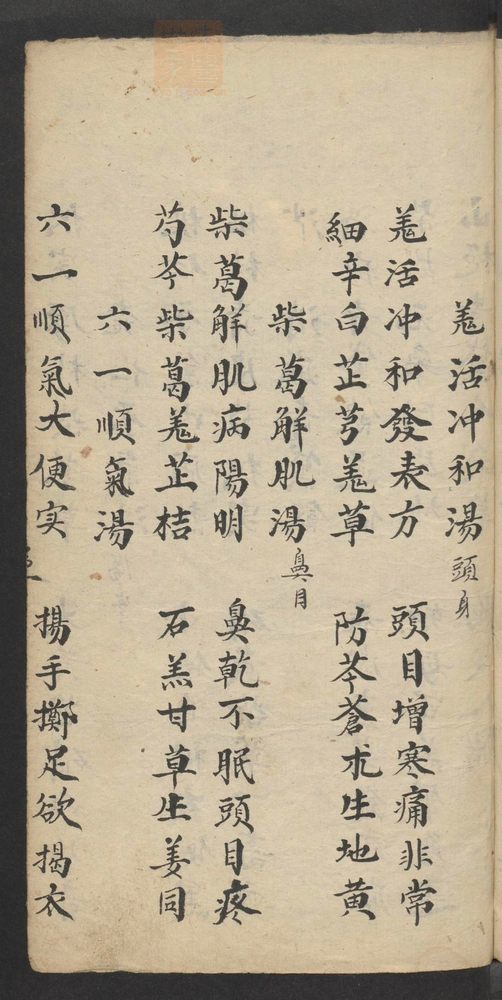 羗活冲和湯 頭身
羗活冲和發表方 頭目增寒痛非常
細辛白芷芎羗草 防芩蒼朮生地黄
柴葛解肌湯 鼻目
柴葛解肌病陽明 鼻乾不眠頭目疼
芍芩柴葛羗芷桔 石羔甘草生姜同
六一順氣湯
六一順氣大便实 揚手擲足欲揭衣